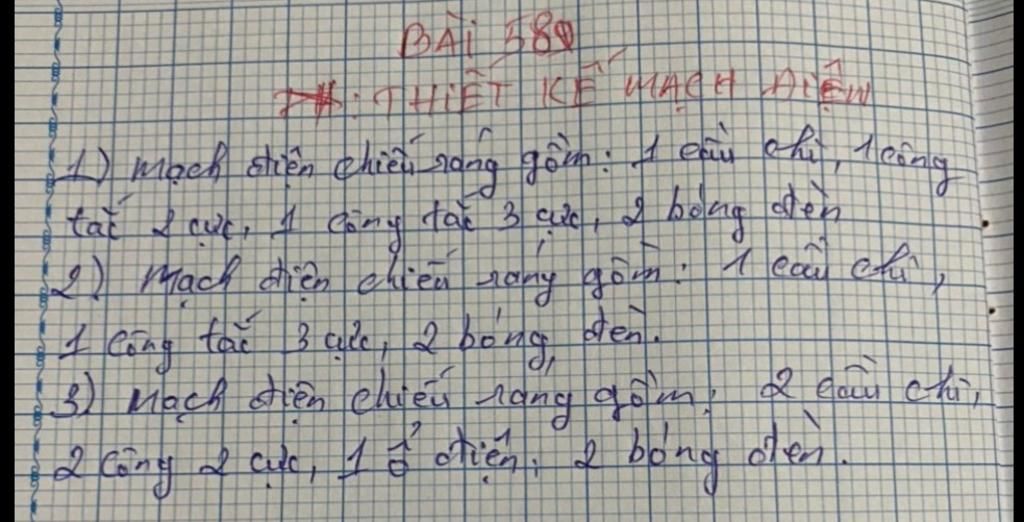 BÀI 58
: THIẾT KẾ MẠCH ĐIỆN
1) Mạch điện chiếu sáng gồm: 1 cầu chì, 1 công
tắc 2 cực, 1 công tắc 3 cực, 2 bóng đèn
2) Mạch điện chiếu sáng gồm: 1 cầu chì,
1 công tắc 3 cực, 2 bóng đèn.
3) Mạch điện chiếu sáng gồm: 2 cầu chì,
2 công 2 cực, 1 ổ điện, 2 bóng đèn.